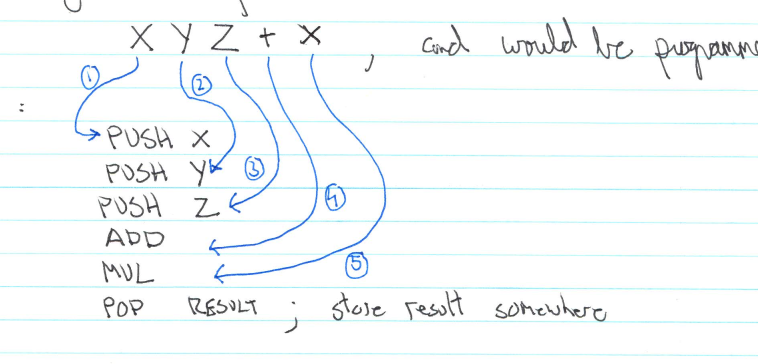 X Y Z + X , and would be programm
① ②
:
PUSH X
PUSH Y ③
PUSH Z ④
ADD
MUL ⑤
POP RESULT ; store result somewhere